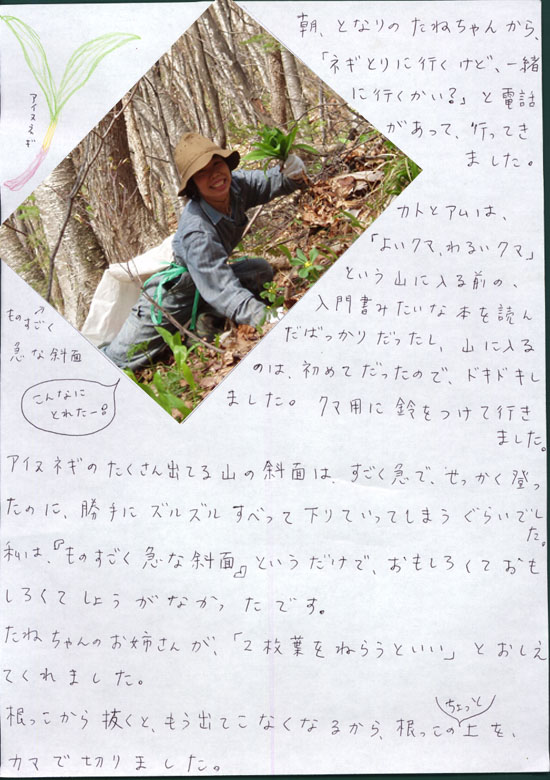 朝、となりの たねちゃん から、
「ネギとりに行くけど、一緒
に行くかい?」と電話
があって、行ってき
ました。
アイヌネギ
カトとアムは、
「よいクマ、わるいクマ」
という山に入る前の、
入門書みたいな本を読ん
だばっかりだったし、山に入る
のは、初めてだったので、ドキドキし
ました。クマ用に鈴をつけて行き
ました。
ものすごく
急な斜面
こんなに
とれたー!
アイヌネギのたくさん出てる山の斜面は、すごく急で、せっかく登っ
たのに、勝手にズルズルすべって下りていってしまうぐらいでし
た。
私は、『ものすごく急な斜面』というだけで、おもしろくておも
しろくてしょうがなかったです。
たねちゃんのお姉さんが、「2枚葉をねらうといい」とおしえ
てくれました。
根っこから抜くと、もう出てこなくなるから、根っこのちょっと上を、
カマで切りました。